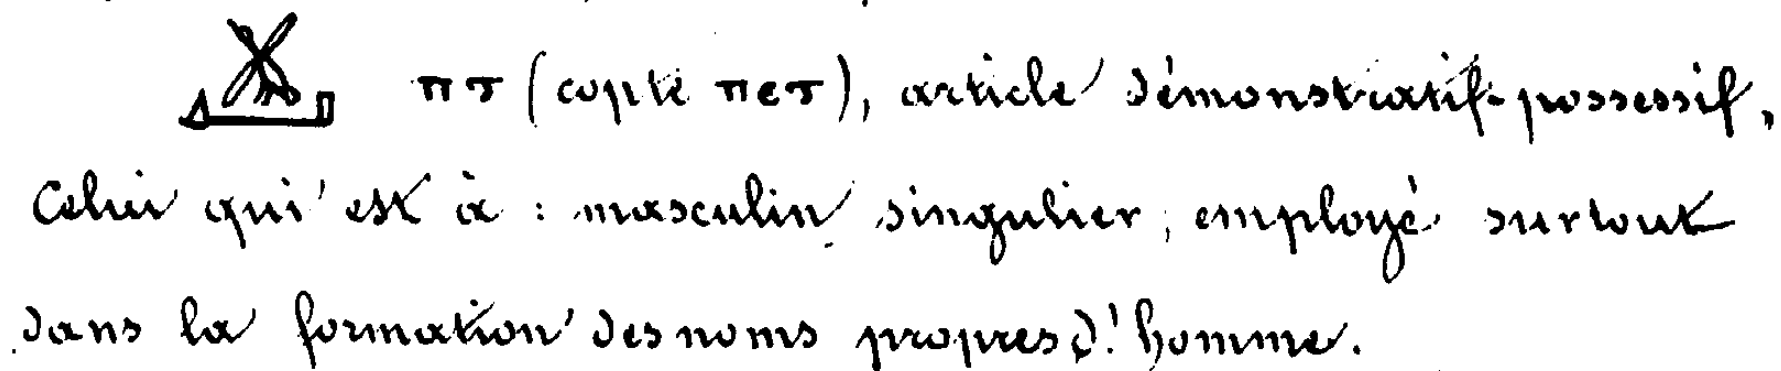 ⲡⲧ (copte ⲡⲉⲧ), article démonstratif-possessif,
Celui qui est à : masculin singulier, employé surtout
dans la formation des noms propres d'homme.